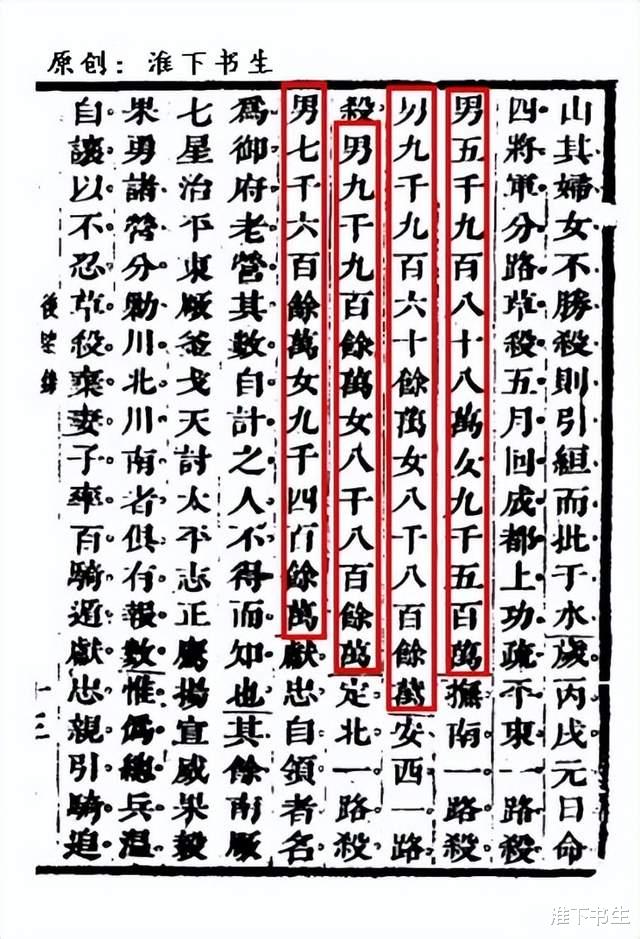 原创：淮下书生
山其婦女不勝殺則引組而批于水歲丙戌元日命
四將軍分路草殺五月回成都上功疏平東一路殺
男五千九百八十八萬女九千五百萬撫南一路殺
男九千九百六十餘萬女八千八百餘萬安西一路
殺男九千九百餘萬女八千八百餘萬定北一路殺
男七千六百餘萬女九千四百餘萬獻忠自領者名
爲御府老營其數自計之人不得而知也其餘南廠
七星治平東廠戈天討太平志正鷹揚宣威果毅
果勇諸營分勦川北川南者俱有報數惟僞總兵溫
自讓以不忍草殺棄妻子率百騎遁獻忠親引騎追
後鑒錄
淮下书生